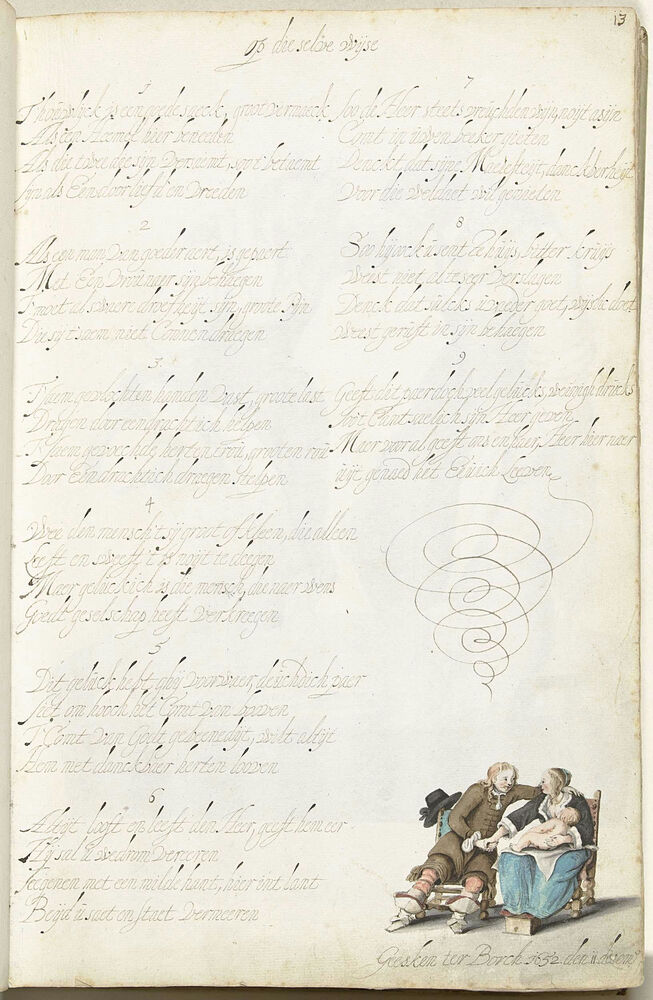 13
op die selve wijse
1
T'houwlyck is een goede saeck, groot vermaeck
Als een Hemel hier beneeden
Als die twee die sijn versaemt, soo't betaemt
sijn als Een door liefd en vreeden
2
Als een man van goeder aert, is gepaert
Met Een vrou naer sijn behagen
T'moet al swaere droefheijt sijn, groote Pijn
Die sij t'saem niet Connen draegen
3
T'saem gevlochten handen vast, groote last
Dragen door eendracht'ich helpen
T'saem gevoechde herten trou, grooten rou
Door Eendrachtich draegen stelpen
4
Wee den mensch t'sij groot of kleen, die alleen
Leeft en weeft, t'is noijt te deegen
Maer geluckich is die mensch, die naer wens
Goedt geselschap heeft verkreegen
5
Dit geluck heft ghij voorwaer, deuchdich paer
siet om hooch het Comt van booven
T Comt van Godt gebenedijt, wilt altijt
Hem met danckbaer herten looven
6
Altijt looft en lieft den Heer, geeft hem eer
Hij sal u wedrom vereeren
seegenen met een milde hant, hier int lant
Beijd u saet en staet vermeeren
7
Soo de Heer steets vreuchden wijn, noijt asijn
Comt in uwen beeker gieten
Denckt dat sijne Maiesteijt, danckbarheijt
Voor die weldaet wil genieten
8
Soo hij oock u sent te huijs, bitter kruijs
Weest niet, al te seer verslagen
Denck dat sulcks u vader goet, wijslic doet
Weest gerust in sijn behaegen
9
Geeft dit paer doch veel gelucks, weinigh drucks
soo't Cant saelich sijn Heer geven
Maer voor al geeft ons en haer, Heer hier naer
uijt genaed het Eewich Leeven
Geesken ter Borch 1652 den 11